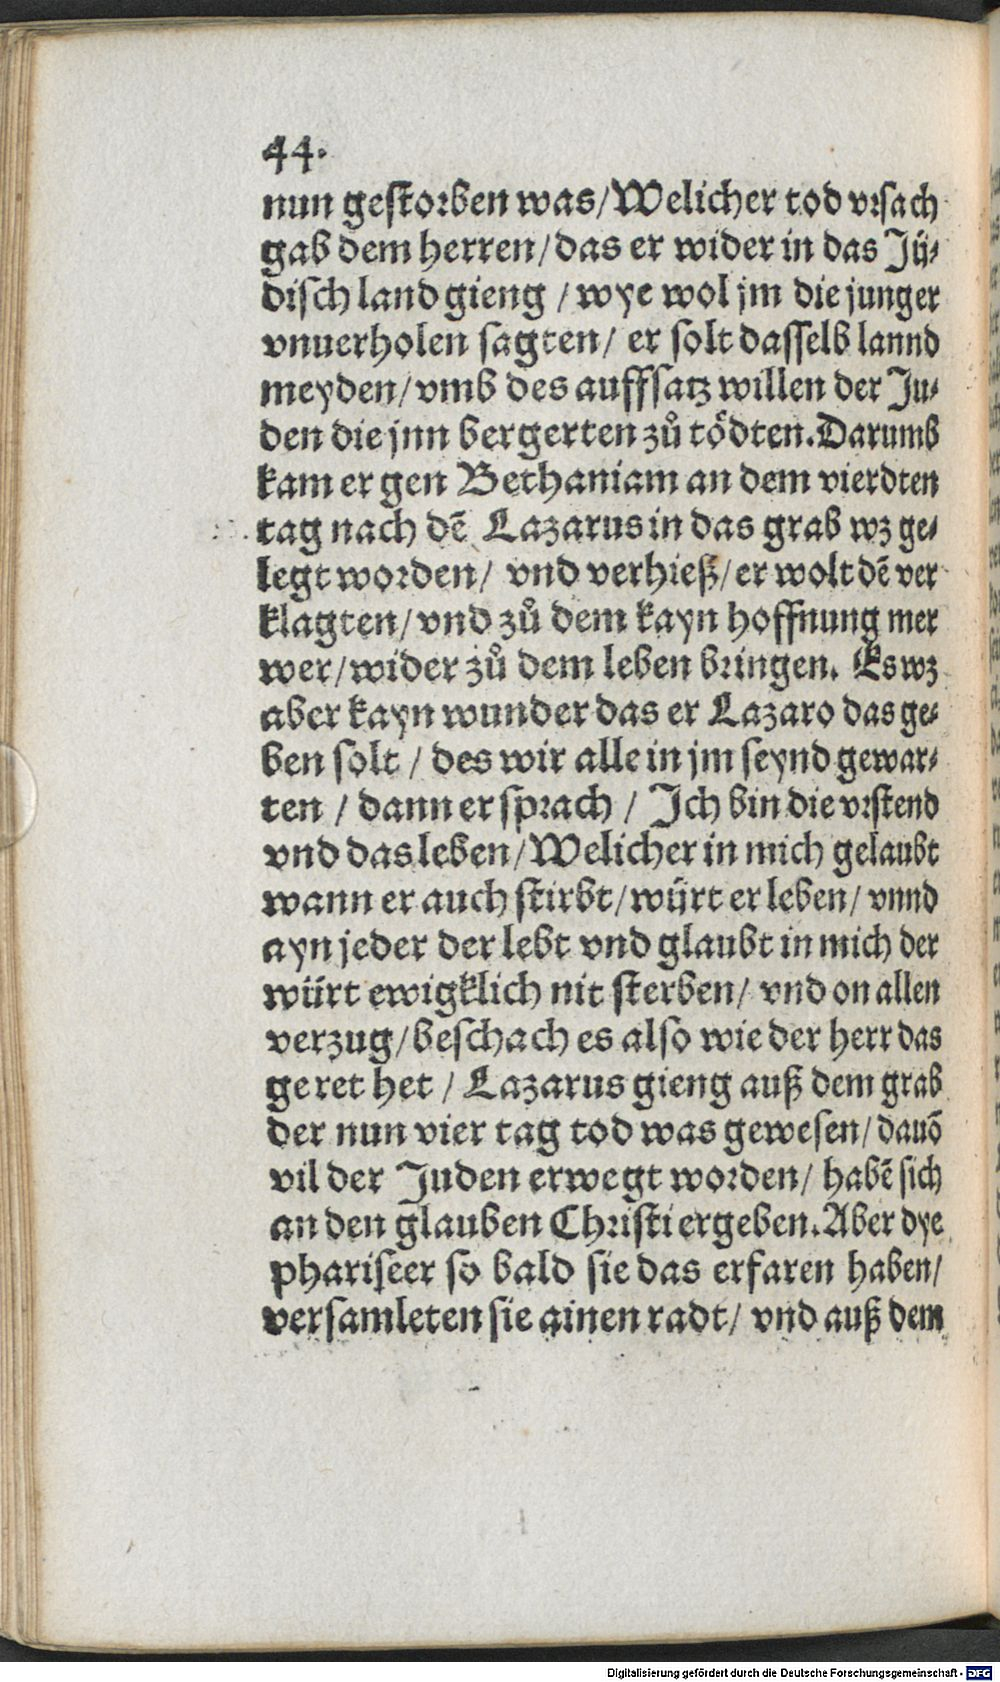 44.
nun gestorben was/Welicher tod vrsach
gab dem herren/das er wider in das Jü-
disch land gieng /wye wol jm die junger
vnuerholen sagten/ er solt dasselb lannd
meyden/vmb des auffsatz willen der Ju-
den die jnn bergerten zů tödten.Darumb
kam er gen Bethaniam an dem vierdten
tag nach dē Lazarus in das grab wz ge-
legt worden/ vnd verhieß/er wolt dē ver
klagten/vnd zů dem kayn hoffnung mer
wer/wider zů dem leben bringen. Es wz
aber kayn wunder das er Lazaro das ge-
ben solt / des wir alle in jm seynd gewar-
ten / dann er sprach / Jch bin die vrstend
vnd das leben/Welicher in mich gelaubt
wann er auch stirbt/würt er leben/ vnnd
ayn jeder der lebt vnd glaubt in mich der
würt ewigklich nit sterben/ vnd on allen
verzug/beschach es also wie der herr das
geret het / Lazarus gieng auß dem grab
der nun vier tag tod was gewesen/ dauō
vil der Juden erwegt worden/ habē sich
an den glauben Christi ergeben.Aber dye
phariseer so bald sie das erfaren haben/
versamleten sie ainen radt/ vnd auß dem
Digitalisierung gefördert durch die Deutsche Forschungsgemeinschaft - DFG